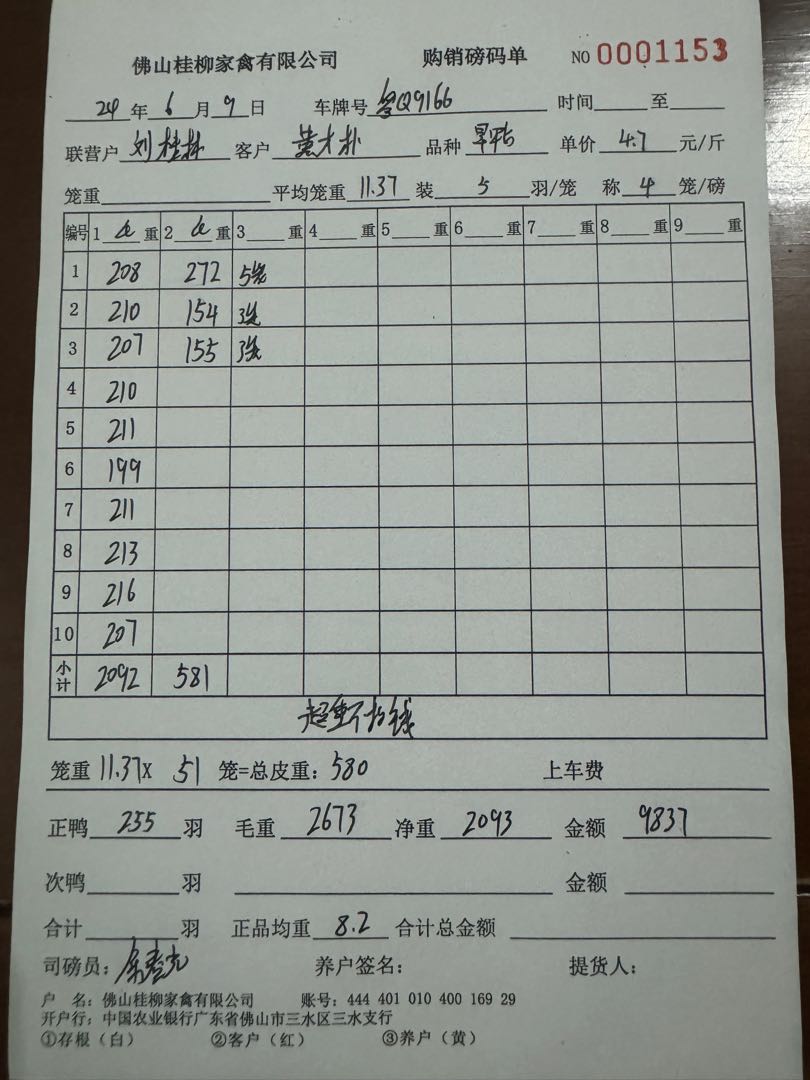 佛山桂柳家禽有限公司 购销磅码单 NO 0001153
24 年 6 月 9 日 车牌号 粤Q9166 时间 至
联营户 刘桂林 客户 黄才朴 品种 单价 4.7 元/斤
笼重 平均笼重 11.37 装 5 羽/笼 称 4 笼/磅
编号 1 毛 重 2 毛 重 3 重 4 重 5 重 6 重 7 重 8 重 9 重
1 208 272 5笼
2 210 154 3笼
3 207 155 3笼
4 210
5 211
6 199
7 211
8 213
9 216
10 207
小计 2092 581
超重不扣钱
笼重 11.37X 51 笼=总皮重: 580 上车费
正鸭 255 羽 毛重 2673 净重 2093 金额 9837
次鸭 羽 金额
合计 羽 正品均重 8.2 合计总金额
司磅员: 养户签名: 提货人:
户 名: 佛山桂柳家禽有限公司 账号: 444 401 010 400 169 29
开户行: 中国农业银行广东省佛山市三水区三水支行
①存根(白) ②客户(红) ③养户(黄)